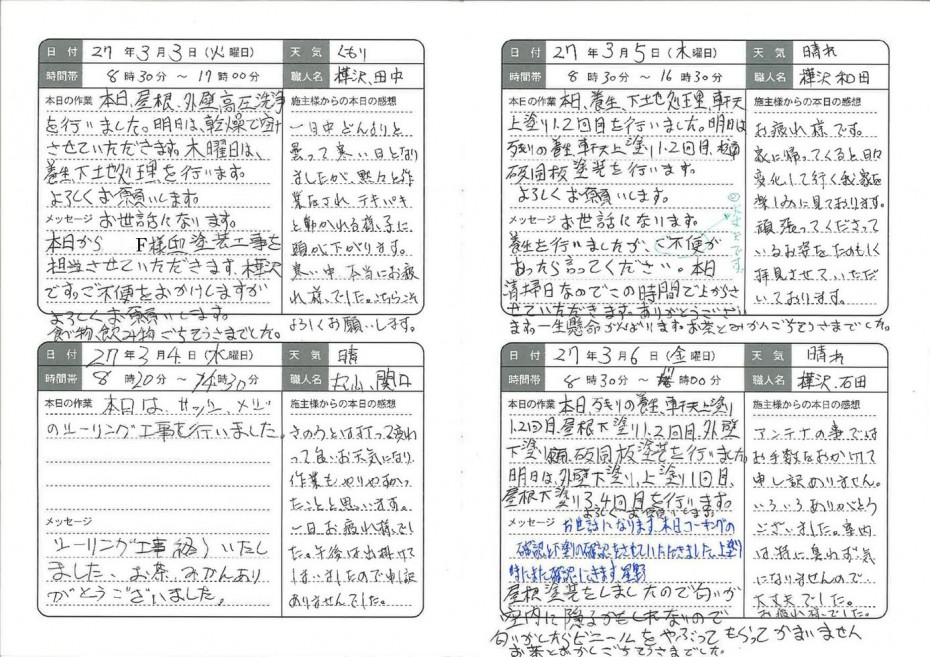 日付 27年3月3日(火曜日) 天気 くもり
時間帯 8時30分 ～ 17時00分 職人名 樺沢、田中
本日の作業 本日、屋根、外壁、高圧洗浄
を行いました。明日は、乾燥で空け
させていただきます。木曜日は、
養生下土地処理を行います。
よろしくお願いします。
メッセージ お世話になります。
本日から F様邸塗装工事を
担当させていただきます、樺沢
です。ご不便をおかけしますが
よろしくお願いします。
食べ物、飲み物ごちそうさまでした。
施主様からの本日の感想
一日中どんよりと
曇って寒い日となり
ましたが、黙々と作
業をされ、テキパキ
と動かれる様子に
頭が下がります。
寒い中、本当にお疲
れ様でした。こちらこそ
よろしくお願いします。
日付 27年3月4日(水曜日) 天気 晴
時間帯 8時20分 ～ 14時30分 職人名 丸山、関口
本日の作業 本日は、サッシ、メジ
のシーリング工事を行いました。
メッセージ
シーリング工事終りいたし
ました、お茶、みかんあり
がとうございました。
施主様からの本日の感想
きのうとは打って変わ
って良いお天気になり、
作業もやりやすかっ
たことと思います。
一日お疲れ様でし
た。午後は出掛けて
しまいましたので申し訳
ありませんでした。
日付 27年3月5日(木曜日) 天気 晴れ
時間帯 8時30分 ～ 16時30分 職人名 樺沢 和田
本日の作業 本日、養生、下土地処理、軒天
上塗り1.2回目を行いました。明日は
残りの養生、軒天上塗り1.2回目、
破風板塗装を行います。
よろしくお願いします。
メッセージ お世話になります。
養生を行いましたが、ご不便が
あったら言ってください。本日
清掃日なのでこの時間で上がらさ
せていただきます。ありがとうござい
ます。一生懸命がんばります。お茶とみかんごちそうさまでした。
施主様からの本日の感想
お疲れ様です。
家に帰ってくると日々
変化して行く我家を
楽しみに見ております。
頑張ってくださって
いるお姿をたのもしく
拝見させていただ
いております。
日付 27年3月6日(金曜日) 天気 晴れ
時間帯 8時30分 ～ 時00分 職人名 樺沢、石田
本日の作業 本日、残りの養生、軒天上塗り
1.2回目、屋根下塗り1.2回目、外壁
下塗り、破風板塗装を行いました。
明日は、外壁下塗り、上塗り1回目、
屋根下塗り3.4回目を行います。
よろしくお願いします。
メッセージ お世話になります。本日コーキングの
確認と下塗りの確認をさせていただきました。上塗り
時にまた確認にきます。星野
屋根塗装をしましたので匂いが
室内に隠るかもしれないので
匂いがしたらビニールをやぶってもらってかまいません
お茶とおかしごちそうさまでした。
施主様からの本日の感想
アンテナの事では
お手数をおかけして
申し訳ありません。
いろいろありがとう
ございました。室内
は特に臭わず、気
になりませんので
大丈夫でした。
お疲れ様でした。